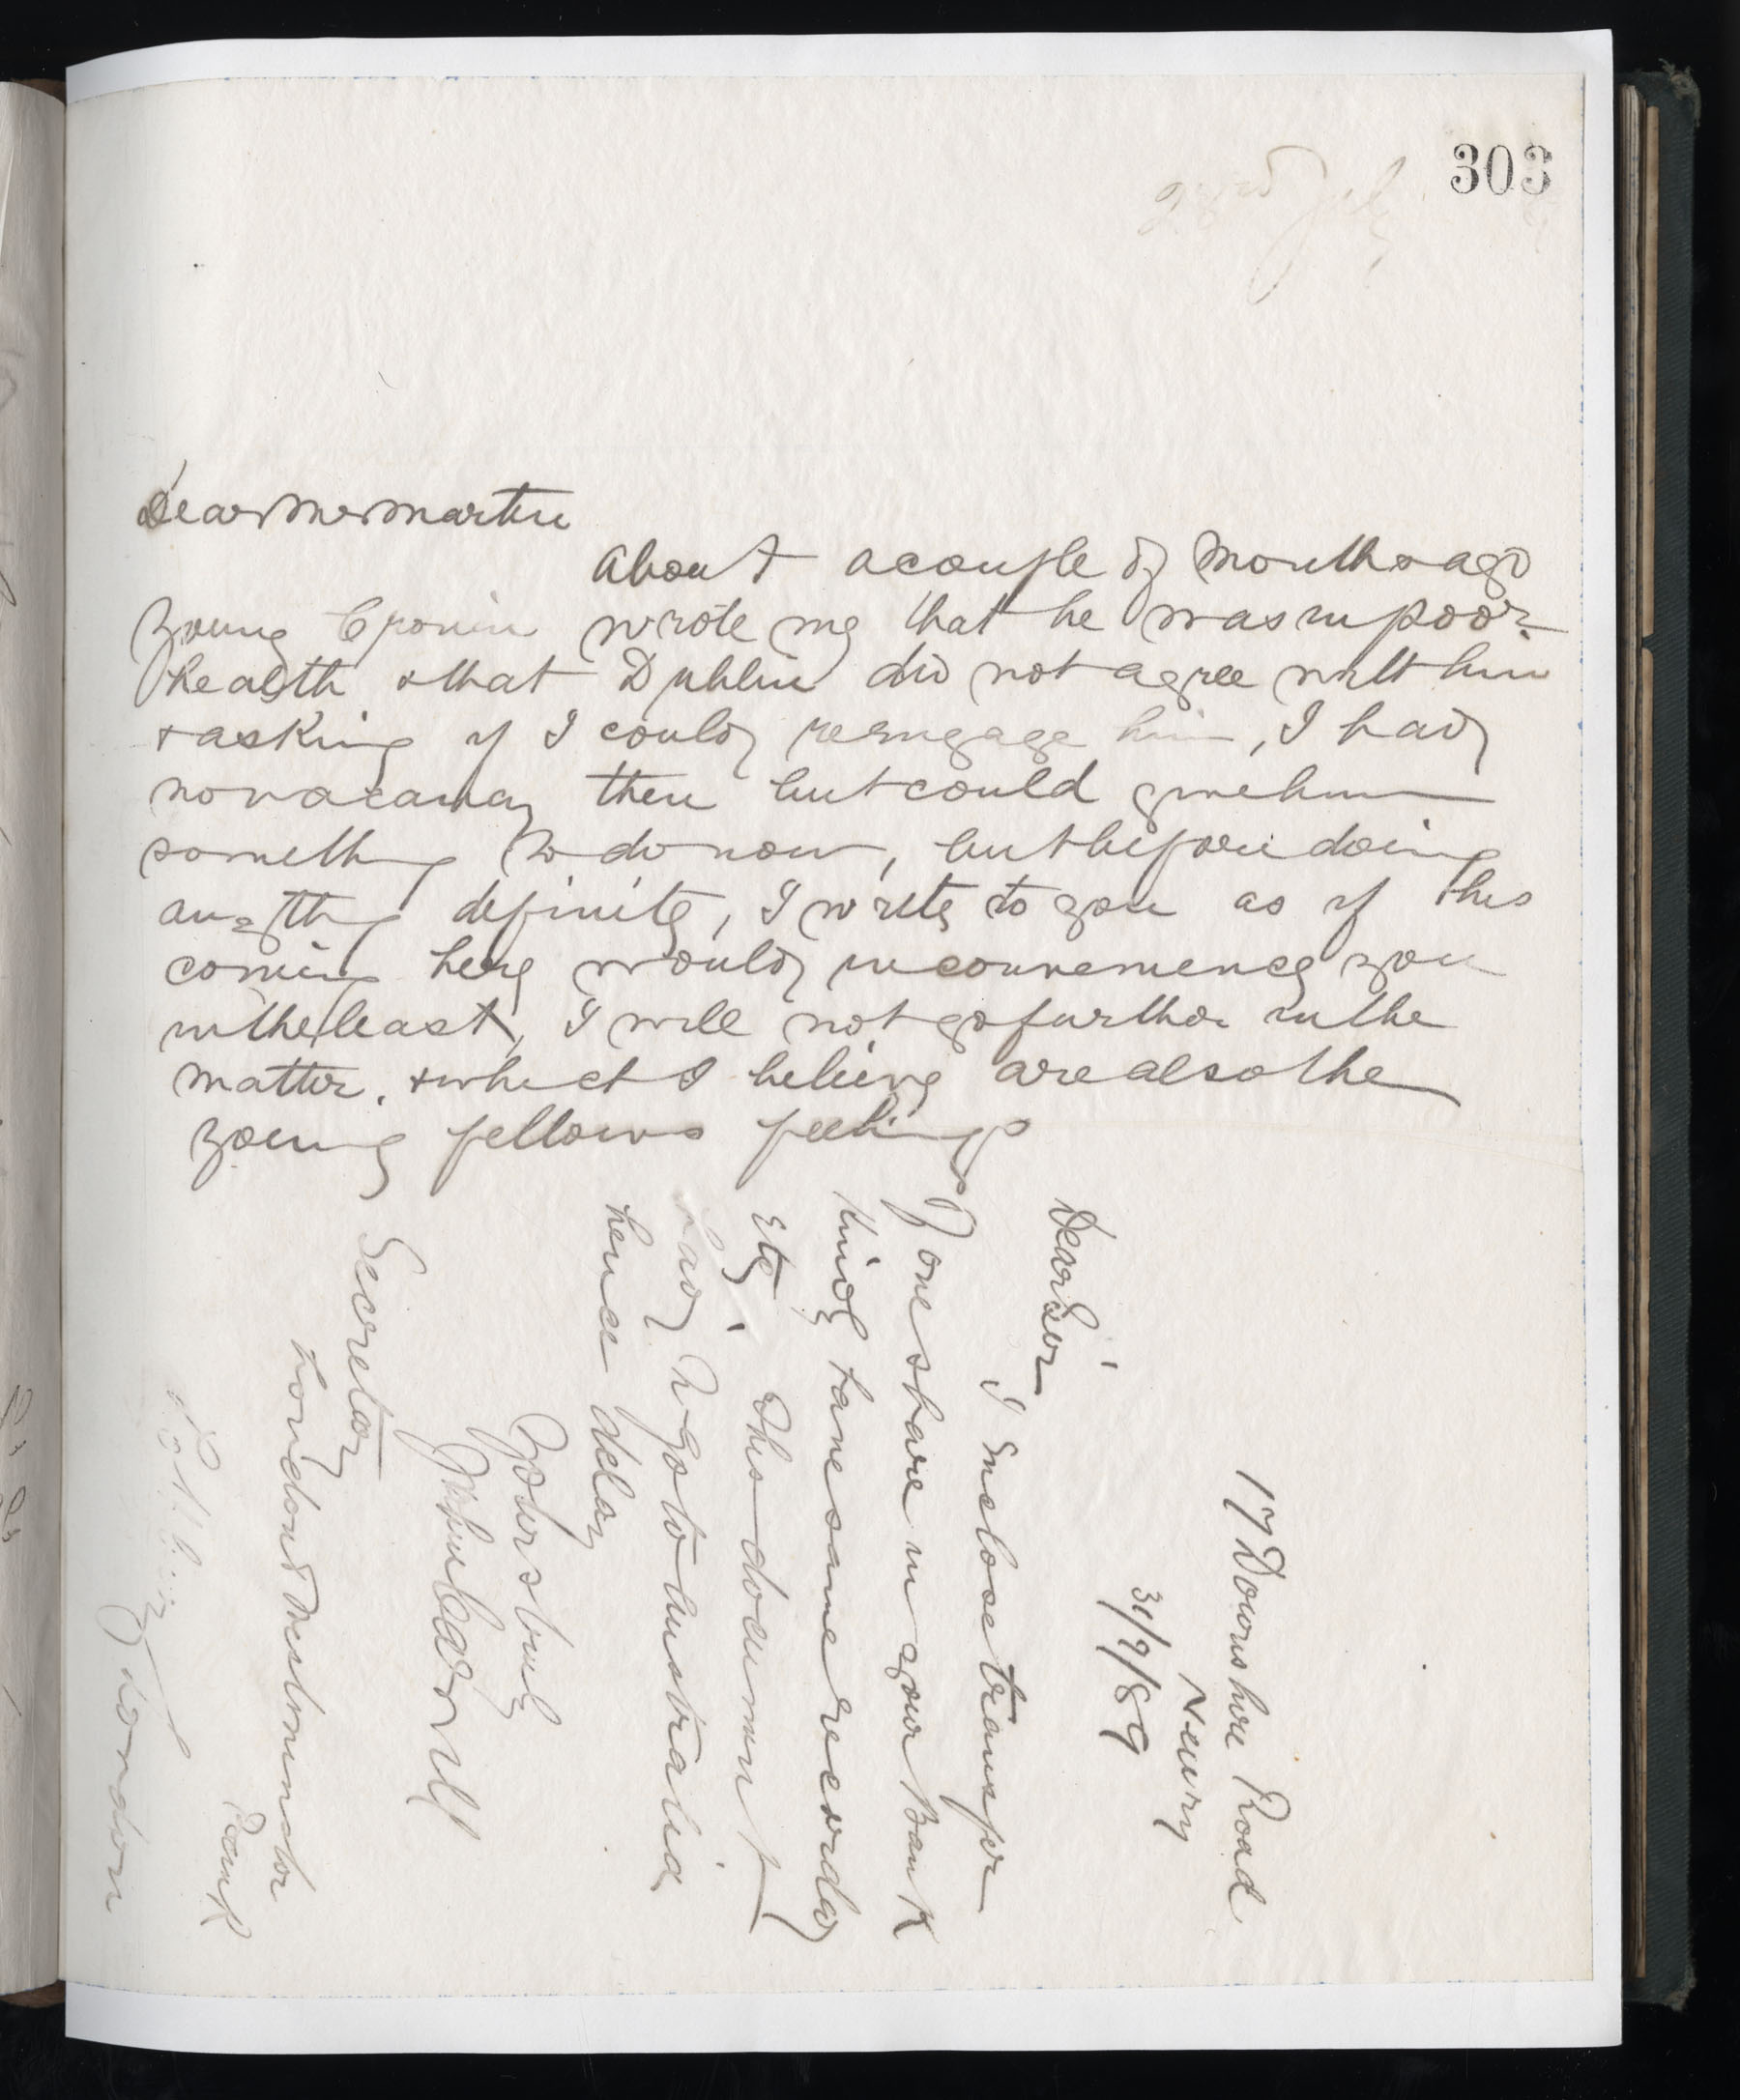 303
Dear Mr Martin
About a couple of months ago
young Cronin wrote me that he was in poor
health & that Dublin did not agree with him
& asking if I could reengage him, I had
no vacancy then but could give him
something to do now, but before doing
anything definite, I write to you as if his
coming here would inconvenience you
in the least, I will not go further in the
matter. & which I believe are also the
young fellows feelings
17 Downshire Road
Newry
31/7/89
Dear Sir
I enclose transfer
of one share in your Bank
Kindly have same recorded
etc. This document
had to go to Australia
hence delay
Yours truly
Secretary
London & Westminster
Bank
Lothbury London